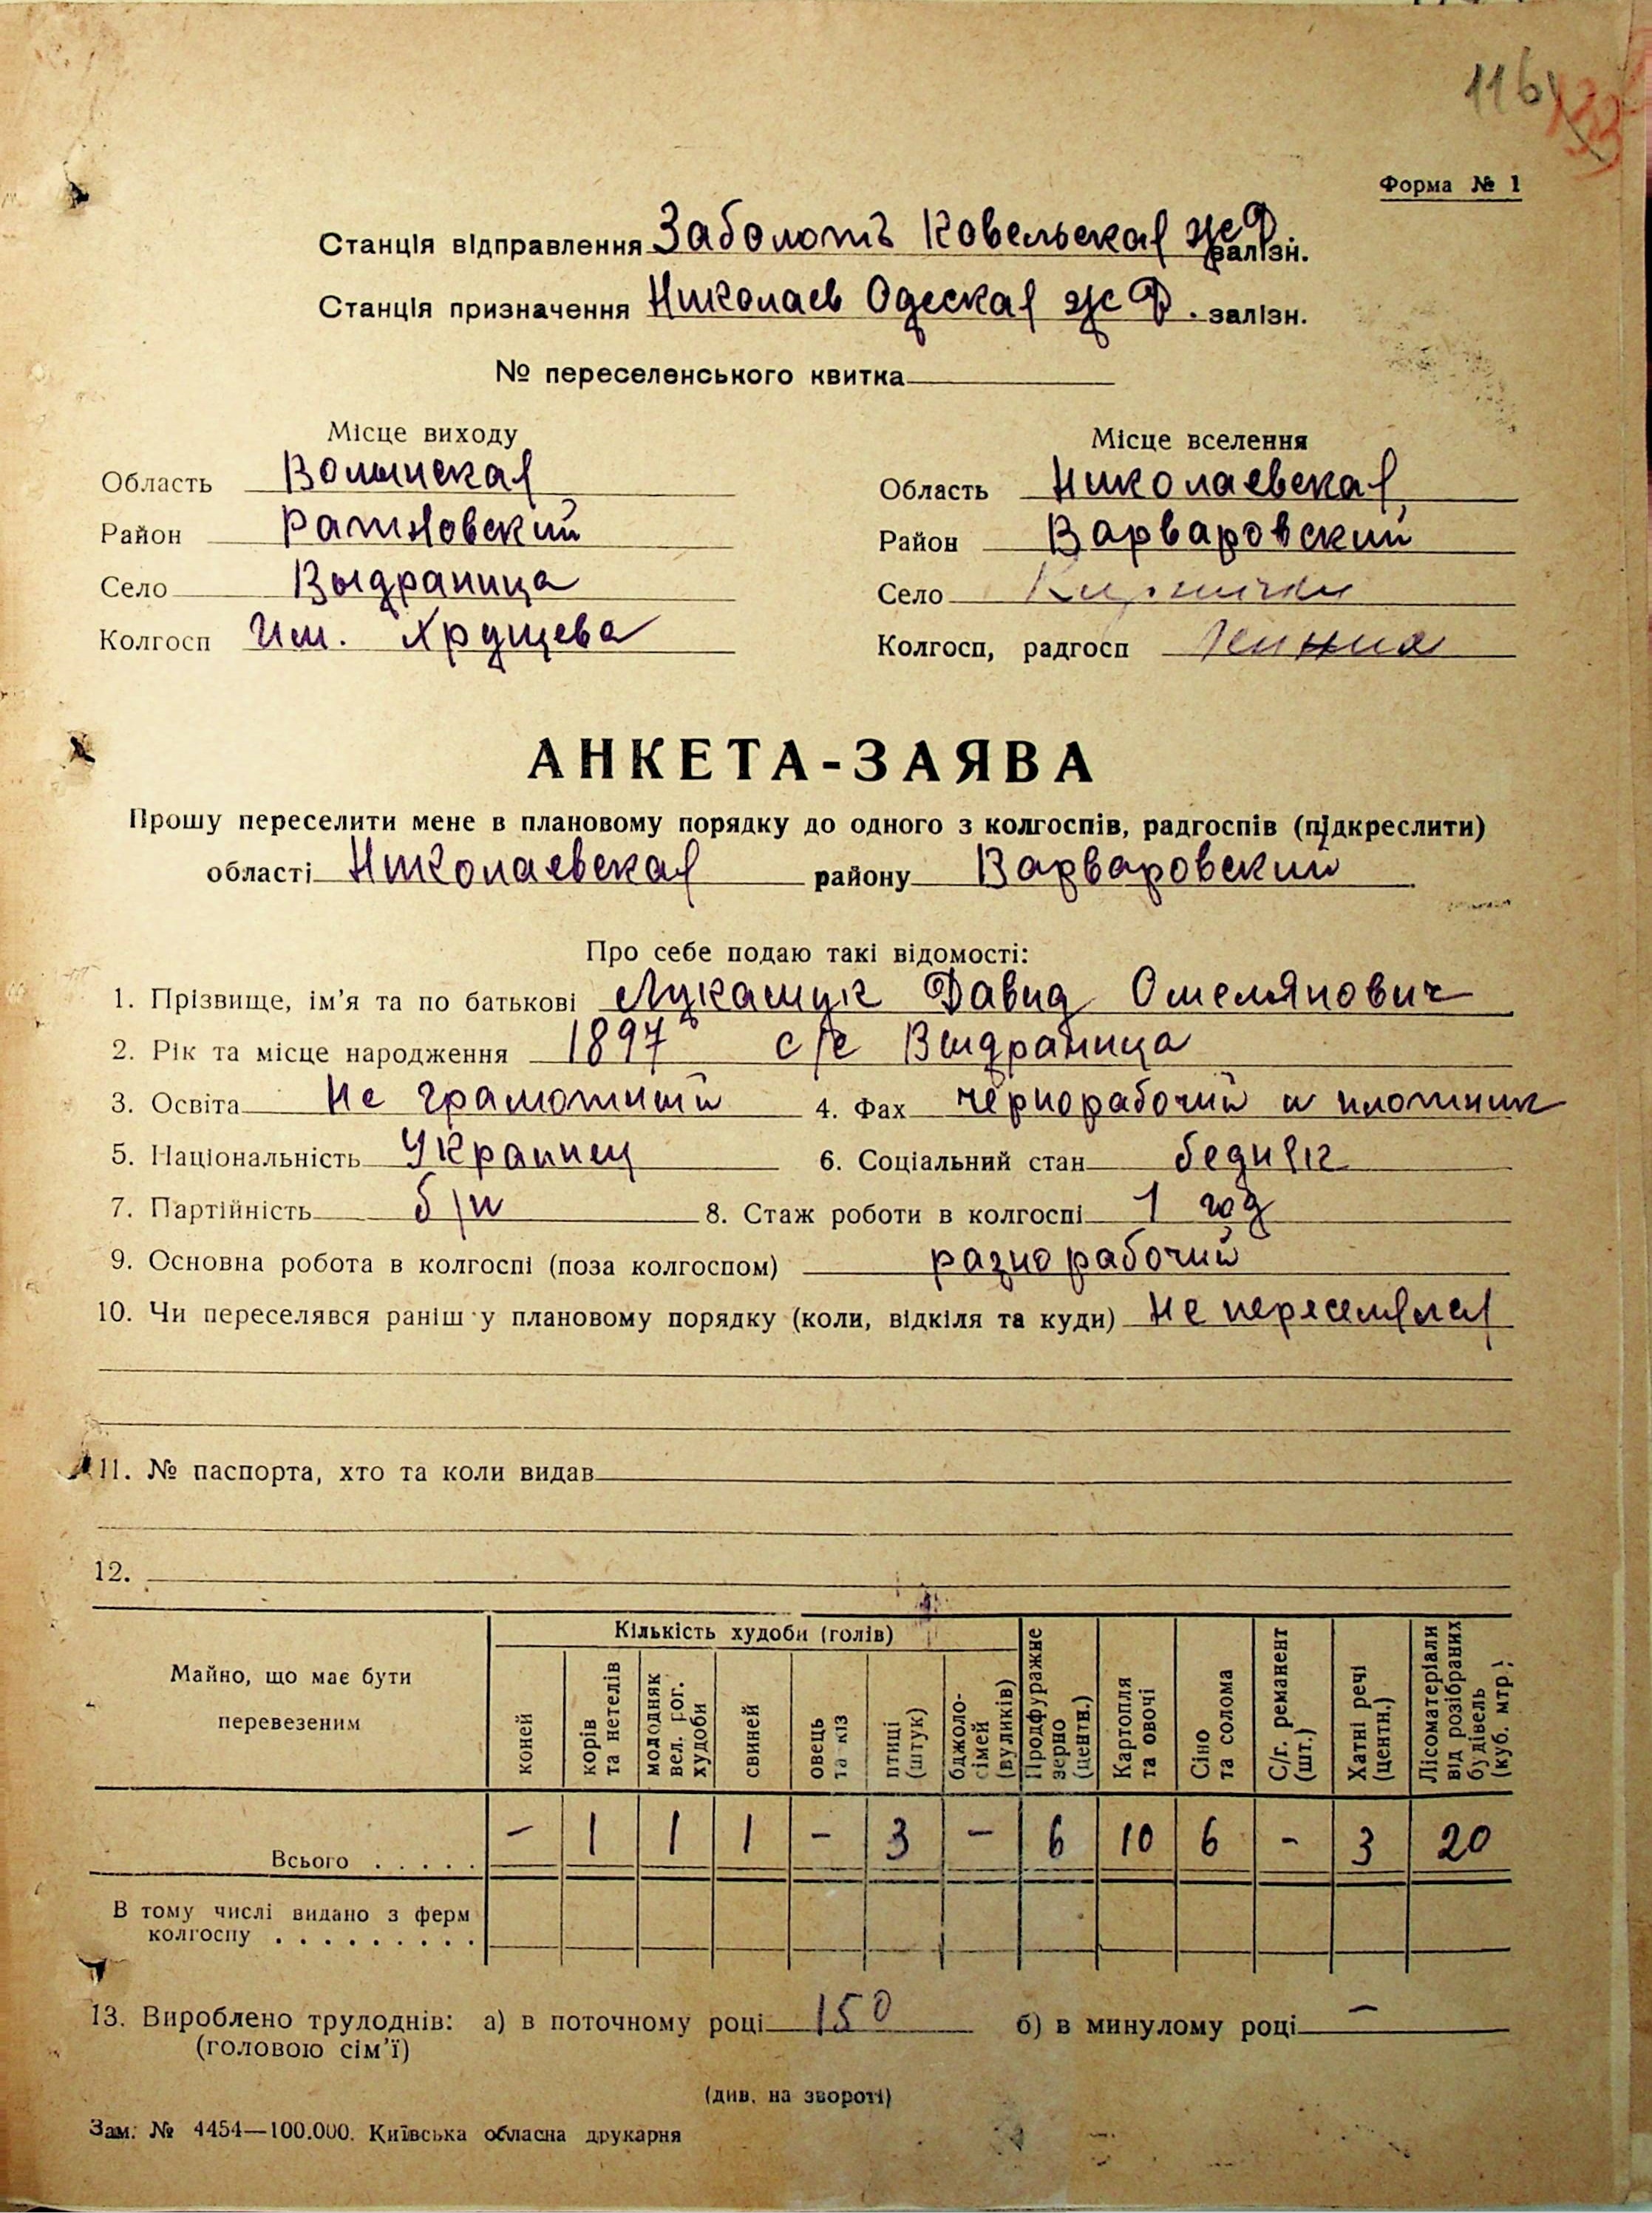 116
Форма № 1
Станція відправлення Заболоть Ковельская ж Д залізн.
Станція призначення Николаев Одеская ж Д . залізн.
№ переселенського квитка
Місце виходу Місце вселення
Область Волынская Область Николаевская
Район Ратновский Район Варваровский
Село Выдраница Село
Колгосп Им. Хрущева Колгосп, радгосп Ленина
АНКЕТА-ЗАЯВА
Прошу переселити мене в плановому порядку до одного з колгоспів, радгоспів (підкреслити)
області Николаевская району Варваровский
Про себе подаю такі відомості:
1. Прізвище, ім’я та по батькові Лукашук Давид Омелянович
2. Рік та місце народження 1897 с/с Выдраница
3. Освіта Не грамотный 4. Фах чернорабочий и плотник
5. Національність Украинец 6. Соціальний стан бедняк
7. Партійність б/п 8. Стаж роботи в колгоспі 1 год
9. Основна робота в колгоспі (поза колгоспом) разнорабочий
10. Чи переселявся раніш у плановому порядку (коли, відкіля та куди) Не переселялся
11. № паспорта, хто та коли видав
12.
Майно, що має бути перевезеним
Кількість худоби (голів)
коней
корів та нетелів
молодняк вел. рог. худоби
свиней
овець та кіз
птиці (штук)
бджоло-сімей (вуликів)
Продфуражне зерно (центн.)
Картопля та овочі
Сіно та солома
С/г. реманент (шт.)
Хатні речі (центн.)
Лісоматеріали від розібраних будівель (куб. мтр)
Всього . . . . . - 1 1 1 - 3 - 6 10 6 - 3 20
В тому числі видано з ферм
колгоспу . . . . . . . . .
13. Вироблено трудоднів: а) в поточному році 150 б) в минулому році —
(головою сім’ї)
(див. на звороті)
Зам. № 4454—100.000. Київська обласна друкарня